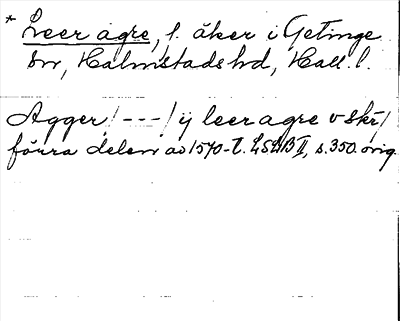 * Leer agre, f. åker i Getinge
sn, Halmstads hd, Hall. l.
Agger /---/ ij leer agre v skr/
förra delen av 1570-t. LSLB II, s. 350. orig.